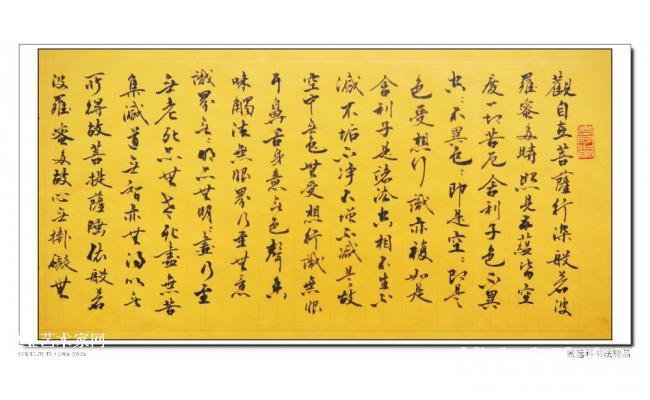 觀自在菩薩行深般若波
羅蜜多時照見五蘊皆空
度一切苦厄舍利子色不異
空〻不異色〻即是空〻即是
色受想行識亦複如是
舍利子是諸法空相不生不
滅不垢不淨不增不減是故
空中無色無受想行識無眼
耳鼻舌身意無色聲香
味觸法無眼界乃至無意
識界無〻明亦無明〻盡乃至
無老死亦無老死盡無苦
集滅道無智亦無得以無
所得故菩提薩埵依般若
波羅蜜多故心無掛礙無
艺术家网
选科书法精品